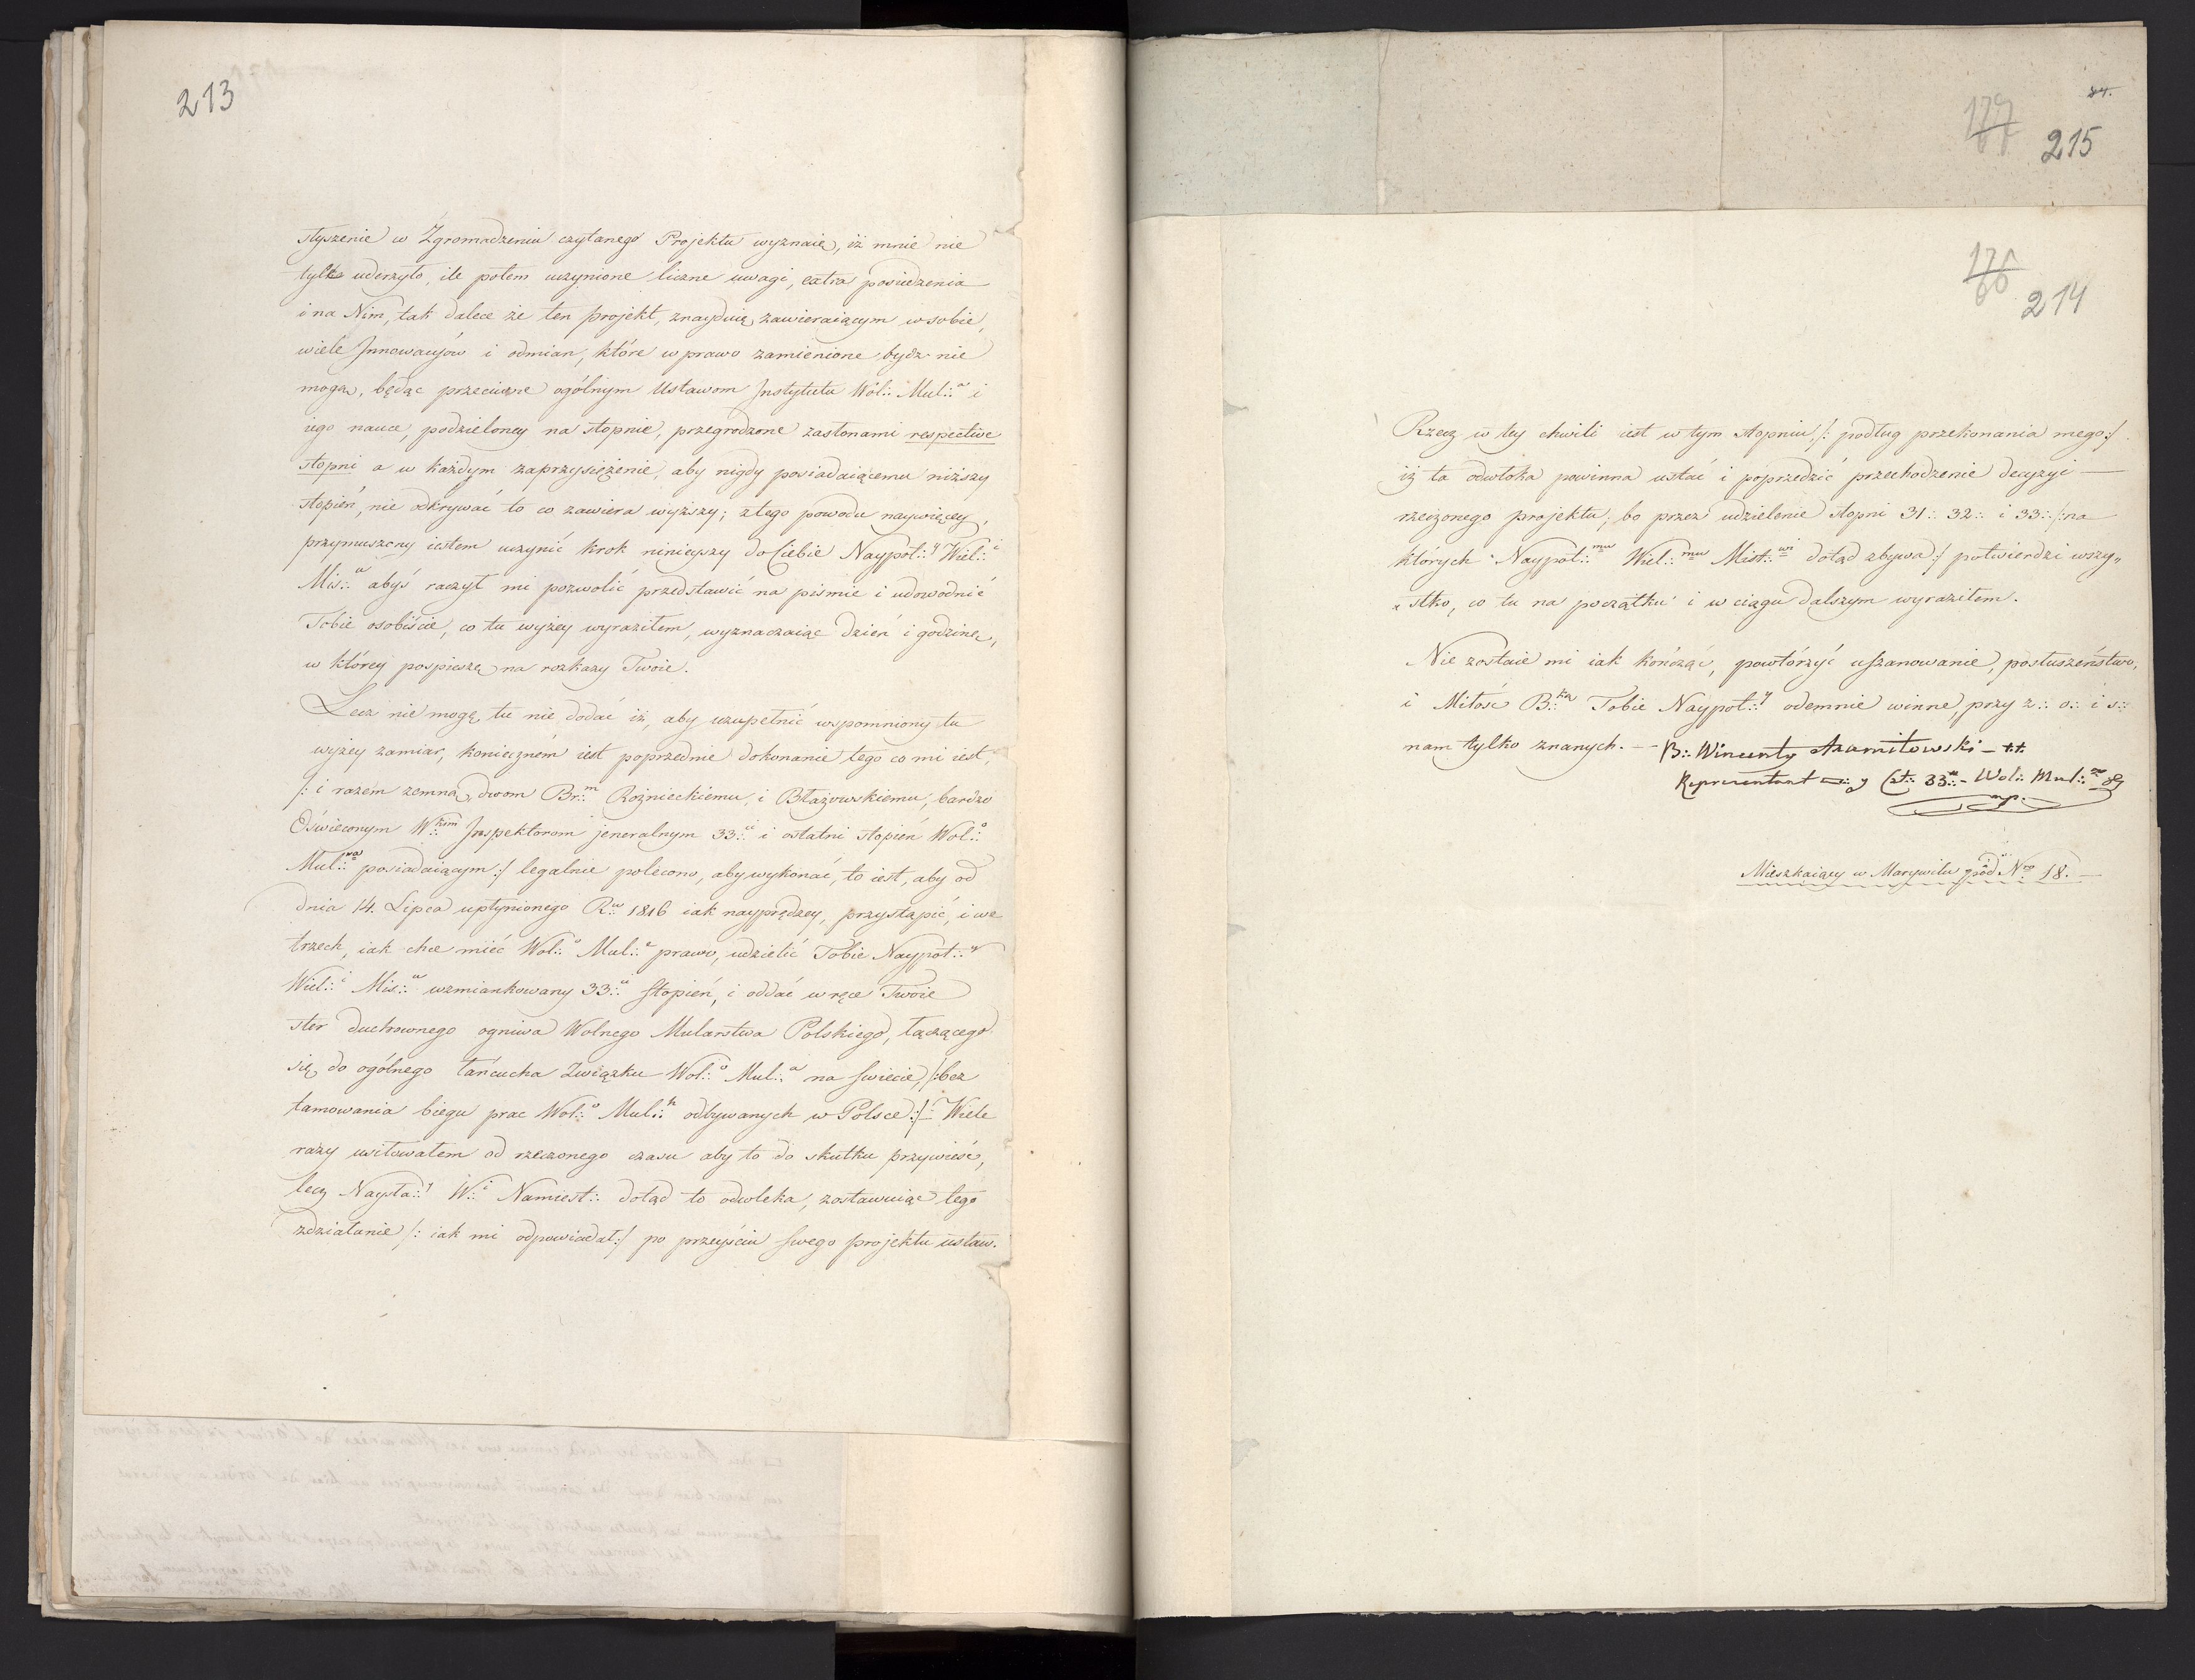 213
słyszenie w Zgromadzeniu czytanego Projektu wyznaię, iż mnie nie
tyle uderzyło, ile potem uczynione liczne uwagi, extra posiedzenia
i na Nim, tak dalece że ten projekt, znayduię zawieraiącym w sobie,
wiele Innowacyów i odmian, które w prawo zamienione bydz nie
mogą, będąc przeciwne ogólnym Ustawom Instytutu Wol:. Mul:.a i
iego nauce, podzieloney na stopnie, przegrodzone zasłonami respective
stopni a w każdym zaprzysiężenie, aby nigdy posiadaiącemu niższy
stopień, nie odkrywać to co zawiera wyższy; z tego powodu naywięcey,
przymuszony iestem uczynić krok ninieyszy do Ciebie Naypot:.y Wiel:.i
Mis:.u abyś raczył mi pozwolić przedstawić na piśmie i udowodnić
Tobie osobiście, co tu wyżey wyraziłem, wyznaczaiąc dzień i godzinę,
w którey pospieszę na rozkazy Twoie.
Lecz nie mogę tu nie dodać iż, aby uzupełnić wspomniony tu
wyżey zamiar, koniecznem iest poprzednie dokonanie tego co mi iest,
/: i razem zemną, dwom Br:.m Rożnieckiemu, i Błażowskiemu, bardzo
Oświeconym W:.kim Inspektorom jeneralnym 33:. i ostatni stopień Wol:.o
Mul:.wa posiadaiącym :/ legalnie polecono, aby wykonać, to iest, aby od
dnia 14. Lipca upłynionego R:.u 1816 iak nayprędzey, przystąpić, i we
trzech, iak chce mieć Wol:.o Mul:.e prawo, udzielić Tobie Naypot:.y
Wiel:.i Mis:.u wzmiankowany 33:. Stopień, i oddać w ręce Twoie
ster duchownego ogniwa Wolnego Mularstwa Polskiego, łączącego
się do ogólnego łańcucha Związku Wol:.o Mul:.a na świecie, /: bez
tamowania biegu prac Wol:.o Mul:.h odbywanych w Polsce :/ Wiele
razy usiłowałem od rzeczonego czasu aby to do skutku przywieść,
lecz Naysta:.y W:.i Namiest:. dotąd to odwleka, zostawuiąc tego
zdziałanie /: iak mi odpowiadał :/ po przeyściu swego projektu ustaw.
84.
177
215
176
66
214
Rzecz w tey chwili iest w tym stopniu, /: podług przekonania mego :/
iż ta odwłoka powinna ustać i poprzedzić przechodzenie decyzyi —
rzeczonego projektu; bo przez udzielenie stopni 31:. 32:. i 33:. /: na
których Naypot:.mu Wiel:.mu Mist:.wi dotąd zbywa :/ potwierdzi wszy„
„stko, co tu na początku i w ciągu dalszym wyraziłem.
Nie zostaie mi iak kończąc, powtórzyć uszanowanie, posłuszeństwo,
i Miłość B:.ką Tobie Naypot:.y odemnie winne, przy z:. o:. i s:.
nam tylko znanych. — B:. Wincenty
Reprezentant 33:. Wol:. Mul:.
mp.
Mieszkaiący w Marywilu pod Nro 18. —